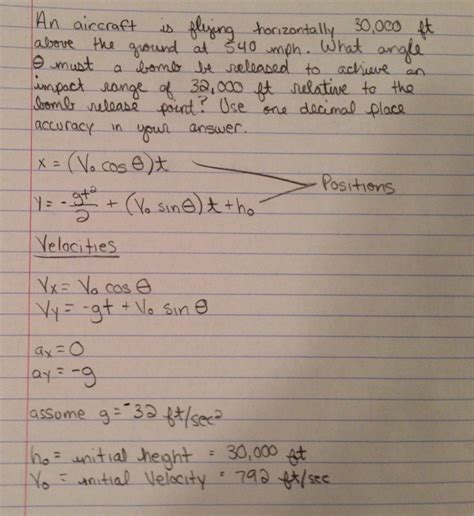 An aircraft is flying horizontally 30,000 ft
above the ground at 540 mph. What angle
θ must a bomb be released to achieve an
impact range of 32,000 ft relative to the
bomb release point? Use one decimal place
accuracy in your answer.
x = (V₀ cos θ)t
Positions
y = -gt²/2 + (V₀ sin θ)t + h₀
Velocities
Vx = V₀ cos θ
Vy = -gt + V₀ sin θ
ax = 0
ay = -g
assume g = -32 ft/sec²
h₀ = initial height = 30,000 ft
V₀ = initial velocity = 792 ft/sec